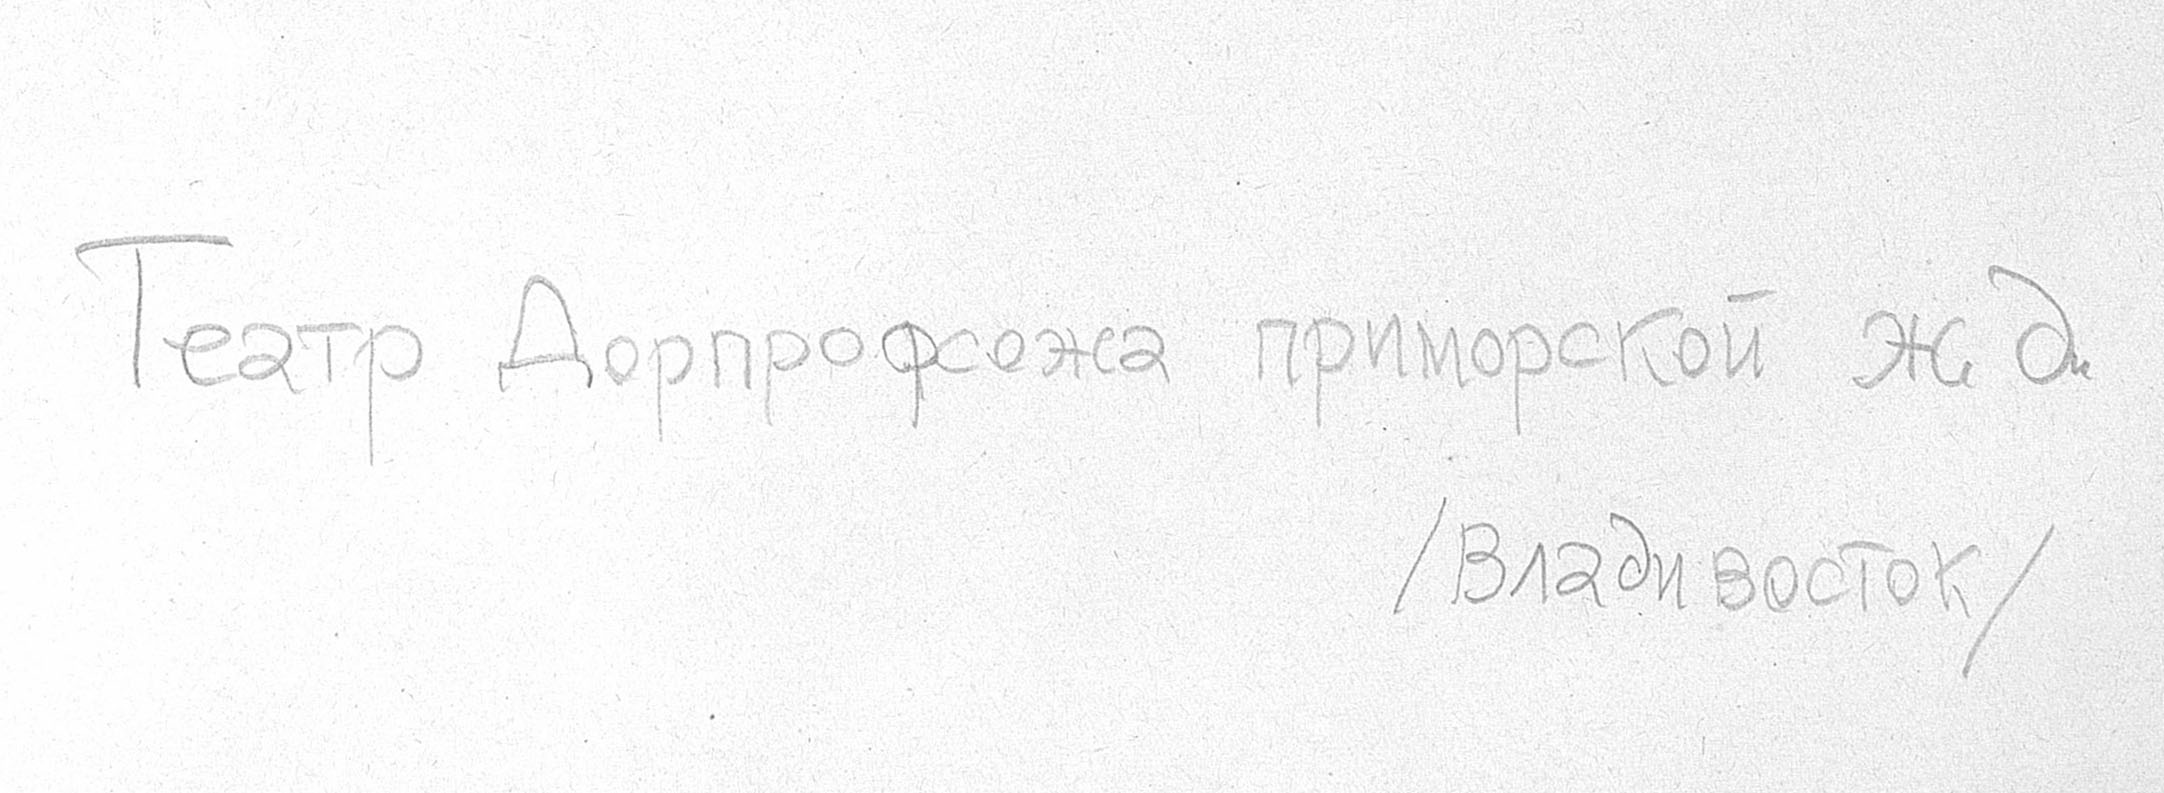 Театр Дорпрофсожа приморской ж. д.
/Владивосток/